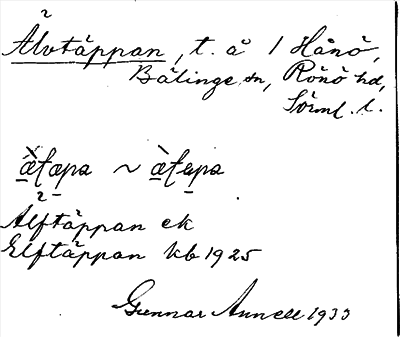 Älvtäppan, t. å 1 Hånö,
Bälinge sn, Rönö hd,
Sörml. l.
Älftäppan ek
Elftäppan kb 1925
Gunnar Annell 1933